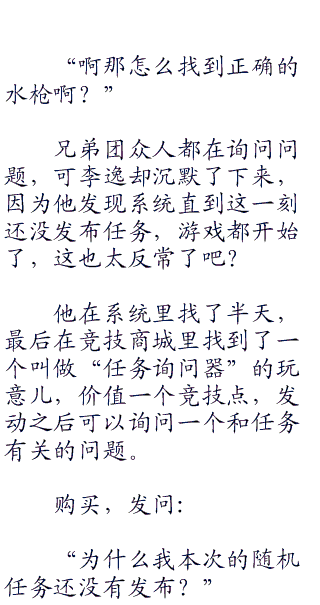 “啊那怎么找到正确的
水枪啊？”
兄弟团众人都在询问问
题，可李逸却沉默了下来，
因为他发现系统直到这一刻
还没发布任务，游戏都开始
了，这也太反常了吧？
他在系统里找了半天，
最后在竞技商城里找到了一
个叫做“任务询问器”的玩
意儿，价值一个竞技点，发
动之后可以询问一个和任务
有关的问题。
购买，发问：
“为什么我本次的随机
任务还没有发布？”